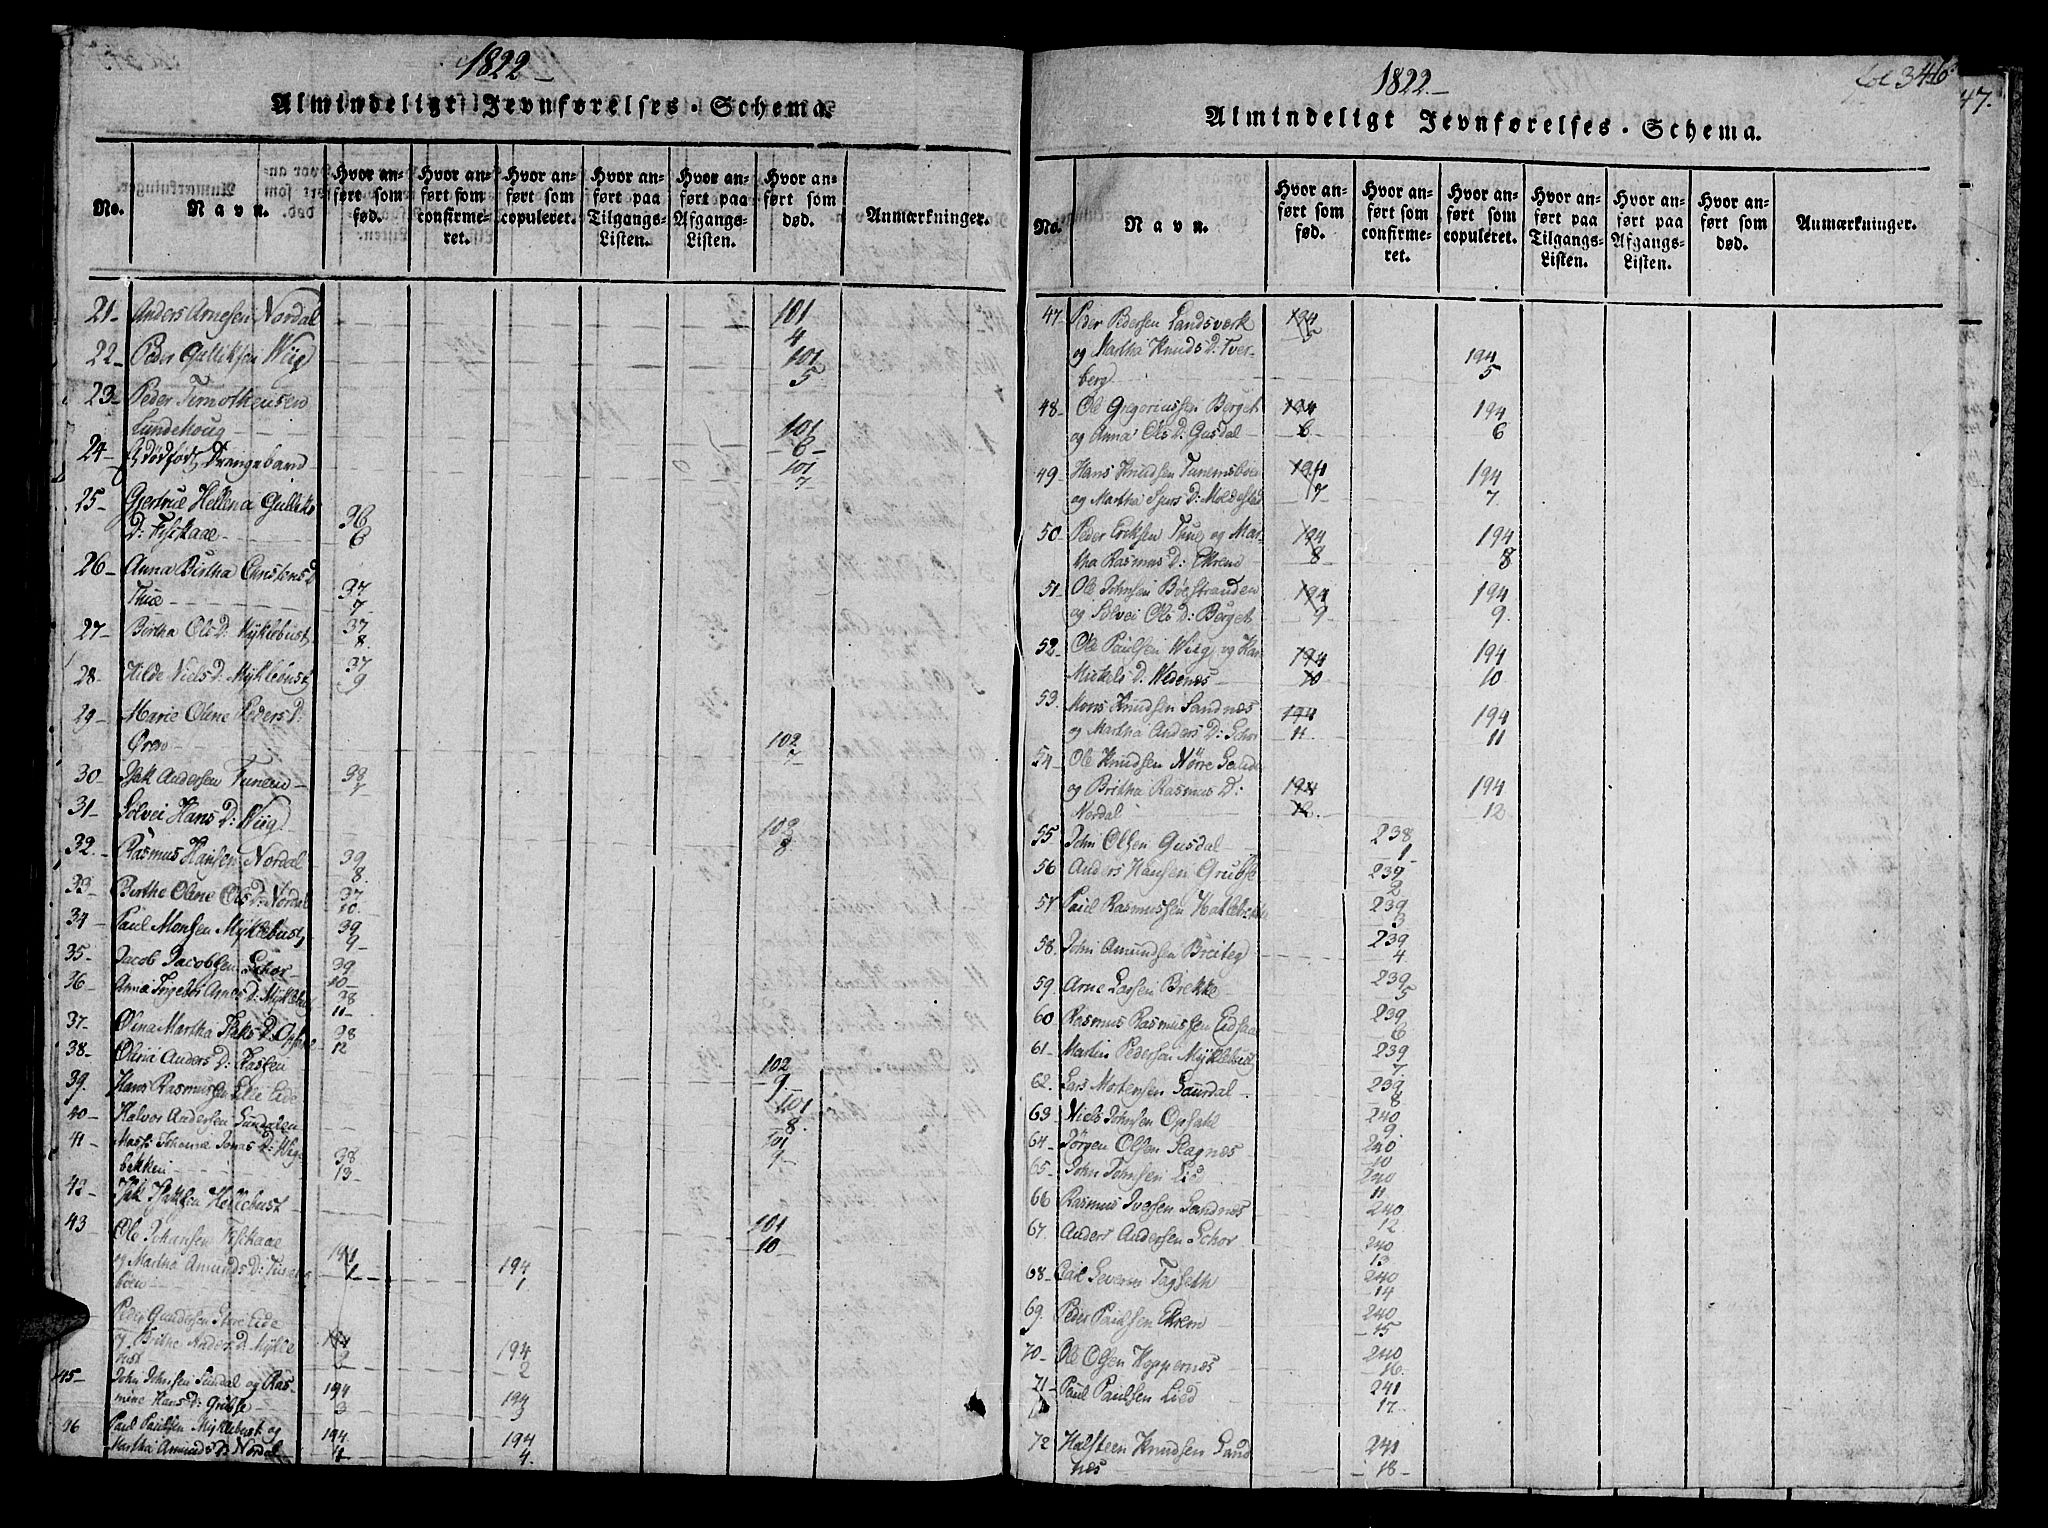 1822
Almindeligt Jevnførelses-Schema.
No.
Navn.
Hvor anført som fød.
Hvor anført som confirmeret.
Hvor anført som copuleret.
Hvor anført paa Tilgangs-Listen.
Hvor anført paa Afgangs-Listen.
Hvor anført som død.
Anmærkninger.
21- Anders Arnesen Nordal 101
4
22- Peder Gulliksen Wiig 101
5
23- Peder Timotheusen
Lundehoug 101
6
24- dødfødt Drengebarn 101
7
25- Gjertrue Hellena Gulliks
D: Fylskaae 36
6
26- Anna Birtha Christens D
Thue 37
7
27- Birtha Ols D: Myklebust 37
8.
28- Hilde Niels D: Myklebust 37
9
29- Marie Oline Peders D:
Ören 102
7
30- Isak Andersen Tunem 38
31- Solvei Hans D: Wiig 102
8
32.- Rasmus Hansen Nordal 39
8.
33- Birthe Oline Ols D: Nordal 37
10.
34- Paul Monsen Myklebust 39
9
35- Jacob Jacobsen Schor 39
10
36- Anna Ingebor Arnes D: Myklebust 38
11
37- Olina Martha Isaks D: Opsal 38
12
38- Olina Anders D: Aasen 102
9
39. Hans Rasmussen Lille Eide 101
8.
40- Halvor Andersen Sundalen 101
9
41- Johanne Jonas D: Wig
bekken 38
13
42-
43 Ole Johansen 101
10
og Martha Amunds D: Tunems
böen 194
1 194
1
Peder Gundersen Store Eide
og Brithe Anders D: Mykle
bust 194
2 194
2
45- John Johnsen Sundal og Ras-
mine Hans D: Grubse 194
3 194
3
46 Paul Paulsen Myklebust og
Martha Amunds D: Nordal 194
4 194
4.
1822.
fol 346
47.
Almindeligt Jevnførelses-Schema.
No.
Navn.
Hvor anført som fød.
Hvor anført som confirmeret.
Hvor anført som copuleret.
Hvor anført paa Tilgangs-Listen.
Hvor anført paa Afgangs-Listen.
Hvor anført som død.
Anmærkninger.
47- Peder Pedersen Landsværk 194
5
og Martha Knuds D: Tver-
berg 194
5
48- Ole Gregoriussen Berget 194 194
og Anna Ols D: Gusdal 6 6
49- Hans Knudsen Tunemsböen 194 194
og Martha Sjurs D: Moldestad 7 7
50- Peder Eriksen Thue og Mar- 194 194
tha Rasmus D: Ekrem 8 8
51- Ole Johnsen Böestranden 194 194
og Solvei Ols D: Berget 9 9.
52- Ole Paulsen Wiig og Kari
Mikkels D: Wedenes 194
10 194
10
53. Mons Knudsen Sandnæs 194 194
og Martha Anders D: Schor 11. 11
54- Ole Knudsen Nörre Sande
og Britha Rasmus D: 194 194
Nordal 12. 12
55- John Olsen Gusdal 238
1
56 Anders Hansen Grubse 239
2
57 Paul Rasmussen Hatlebakk 239
3
58. John Amundsen Breiteg 239
4
59. Arne Larsen Brekke 239
5
60 Rasmus Rasmussen Eidsaa 239
6
61- Martin Pedersen Myklebust 239
7
62. Lars Mortensen Saurdal 239
8
63 Niels Johnsen Opsahl 240
9.
64- Jörgen Olsen Stagnæs 240
10
65- John Johnsen Lied 240
11
66 Rasmus Iversen Sandnæs 240
12
67. Anders Andersen Schor 240
13
68- Carl Severin Tagseth 240
14
69. Peder Paulsen Ekrem 240
15
70- Ole Olsen Koppernæs 240
16.
71- Paul Paulsen Lied 241
17.
72 Halsteen Knudsen Sand
næs 241
18